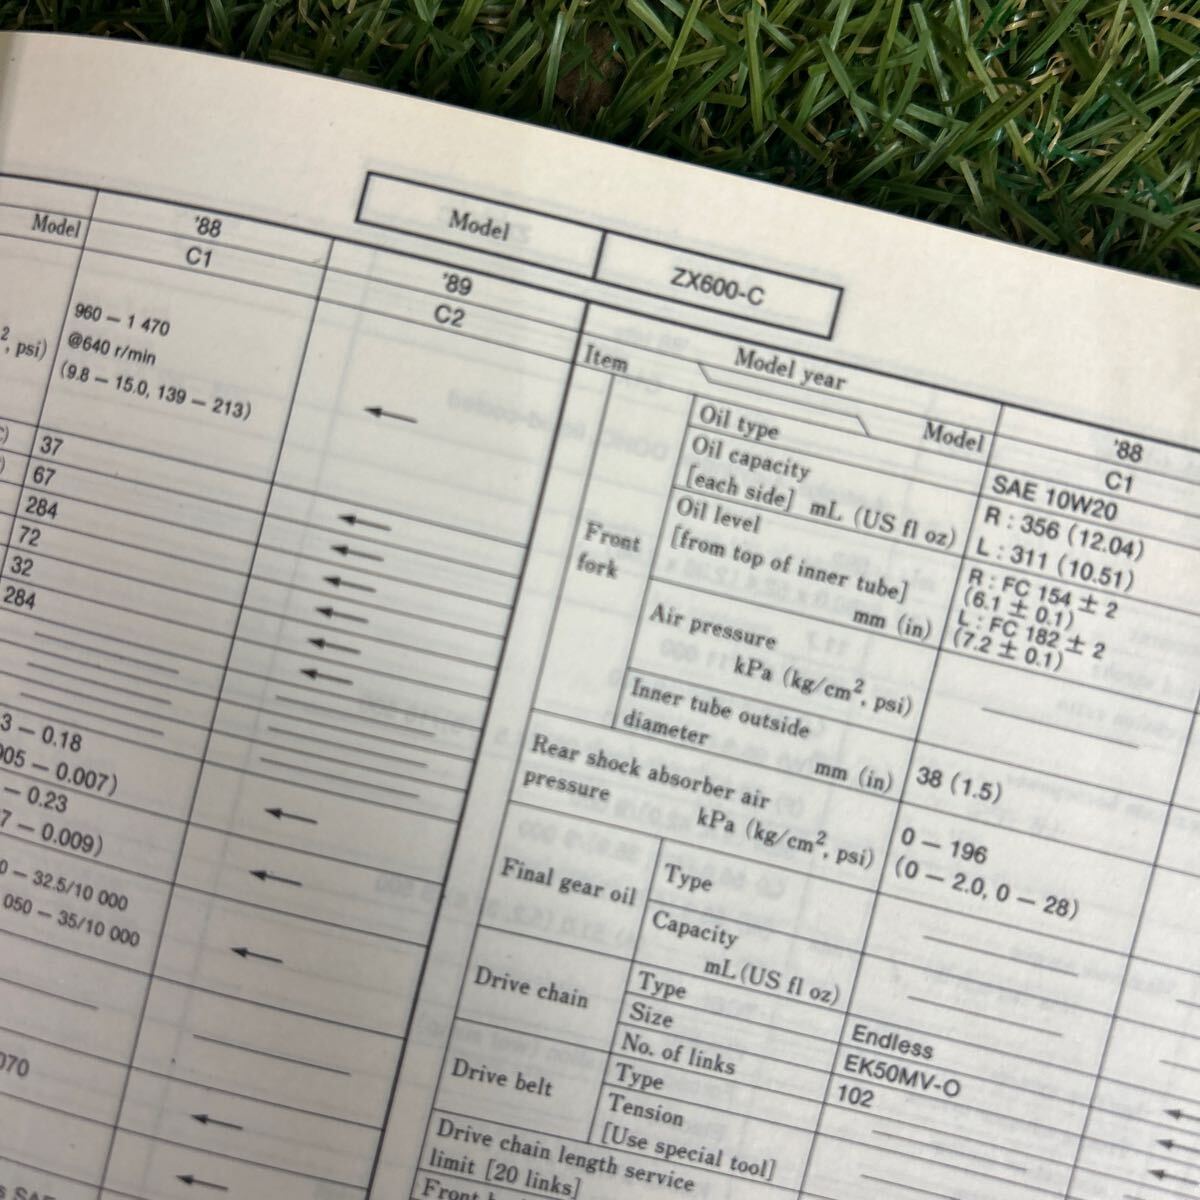 Model
ZX600-C
Model
'88
'89
C1
C2
2, psi)
960 – 1 470
@640 r/min
(9.8 – 15.0, 139 – 213)
37
67
284
72
32
284
3 – 0.18
005 – 0.007)
– 0.23
7 – 0.009)
0 – 32.5/10 000
050 – 35/10 000
070
Item
Model year
Model
'88
C1
Front
fork
Oil type
SAE 10W20
Oil capacity
[each side] mL (US fl oz)
R : 356 (12.04)
L : 311 (10.51)
Oil level
[from top of inner tube]
mm (in)
R : FC 154 ± 2
(6.1 ± 0.1)
L : FC 182 ± 2
(7.2 ± 0.1)
Air pressure
kPa (kg/cm2, psi)
Inner tube outside
diameter
mm (in)
38 (1.5)
Rear shock absorber air
pressure
kPa (kg/cm2, psi)
0 – 196
(0 – 2.0, 0 – 28)
Final gear oil
Type
Capacity
mL (US fl oz)
Drive chain
Type
Endless
Size
EK50MV-O
No. of links
102
Drive belt
Type
Tension
[Use special tool]
Drive chain length service
limit [20 links]